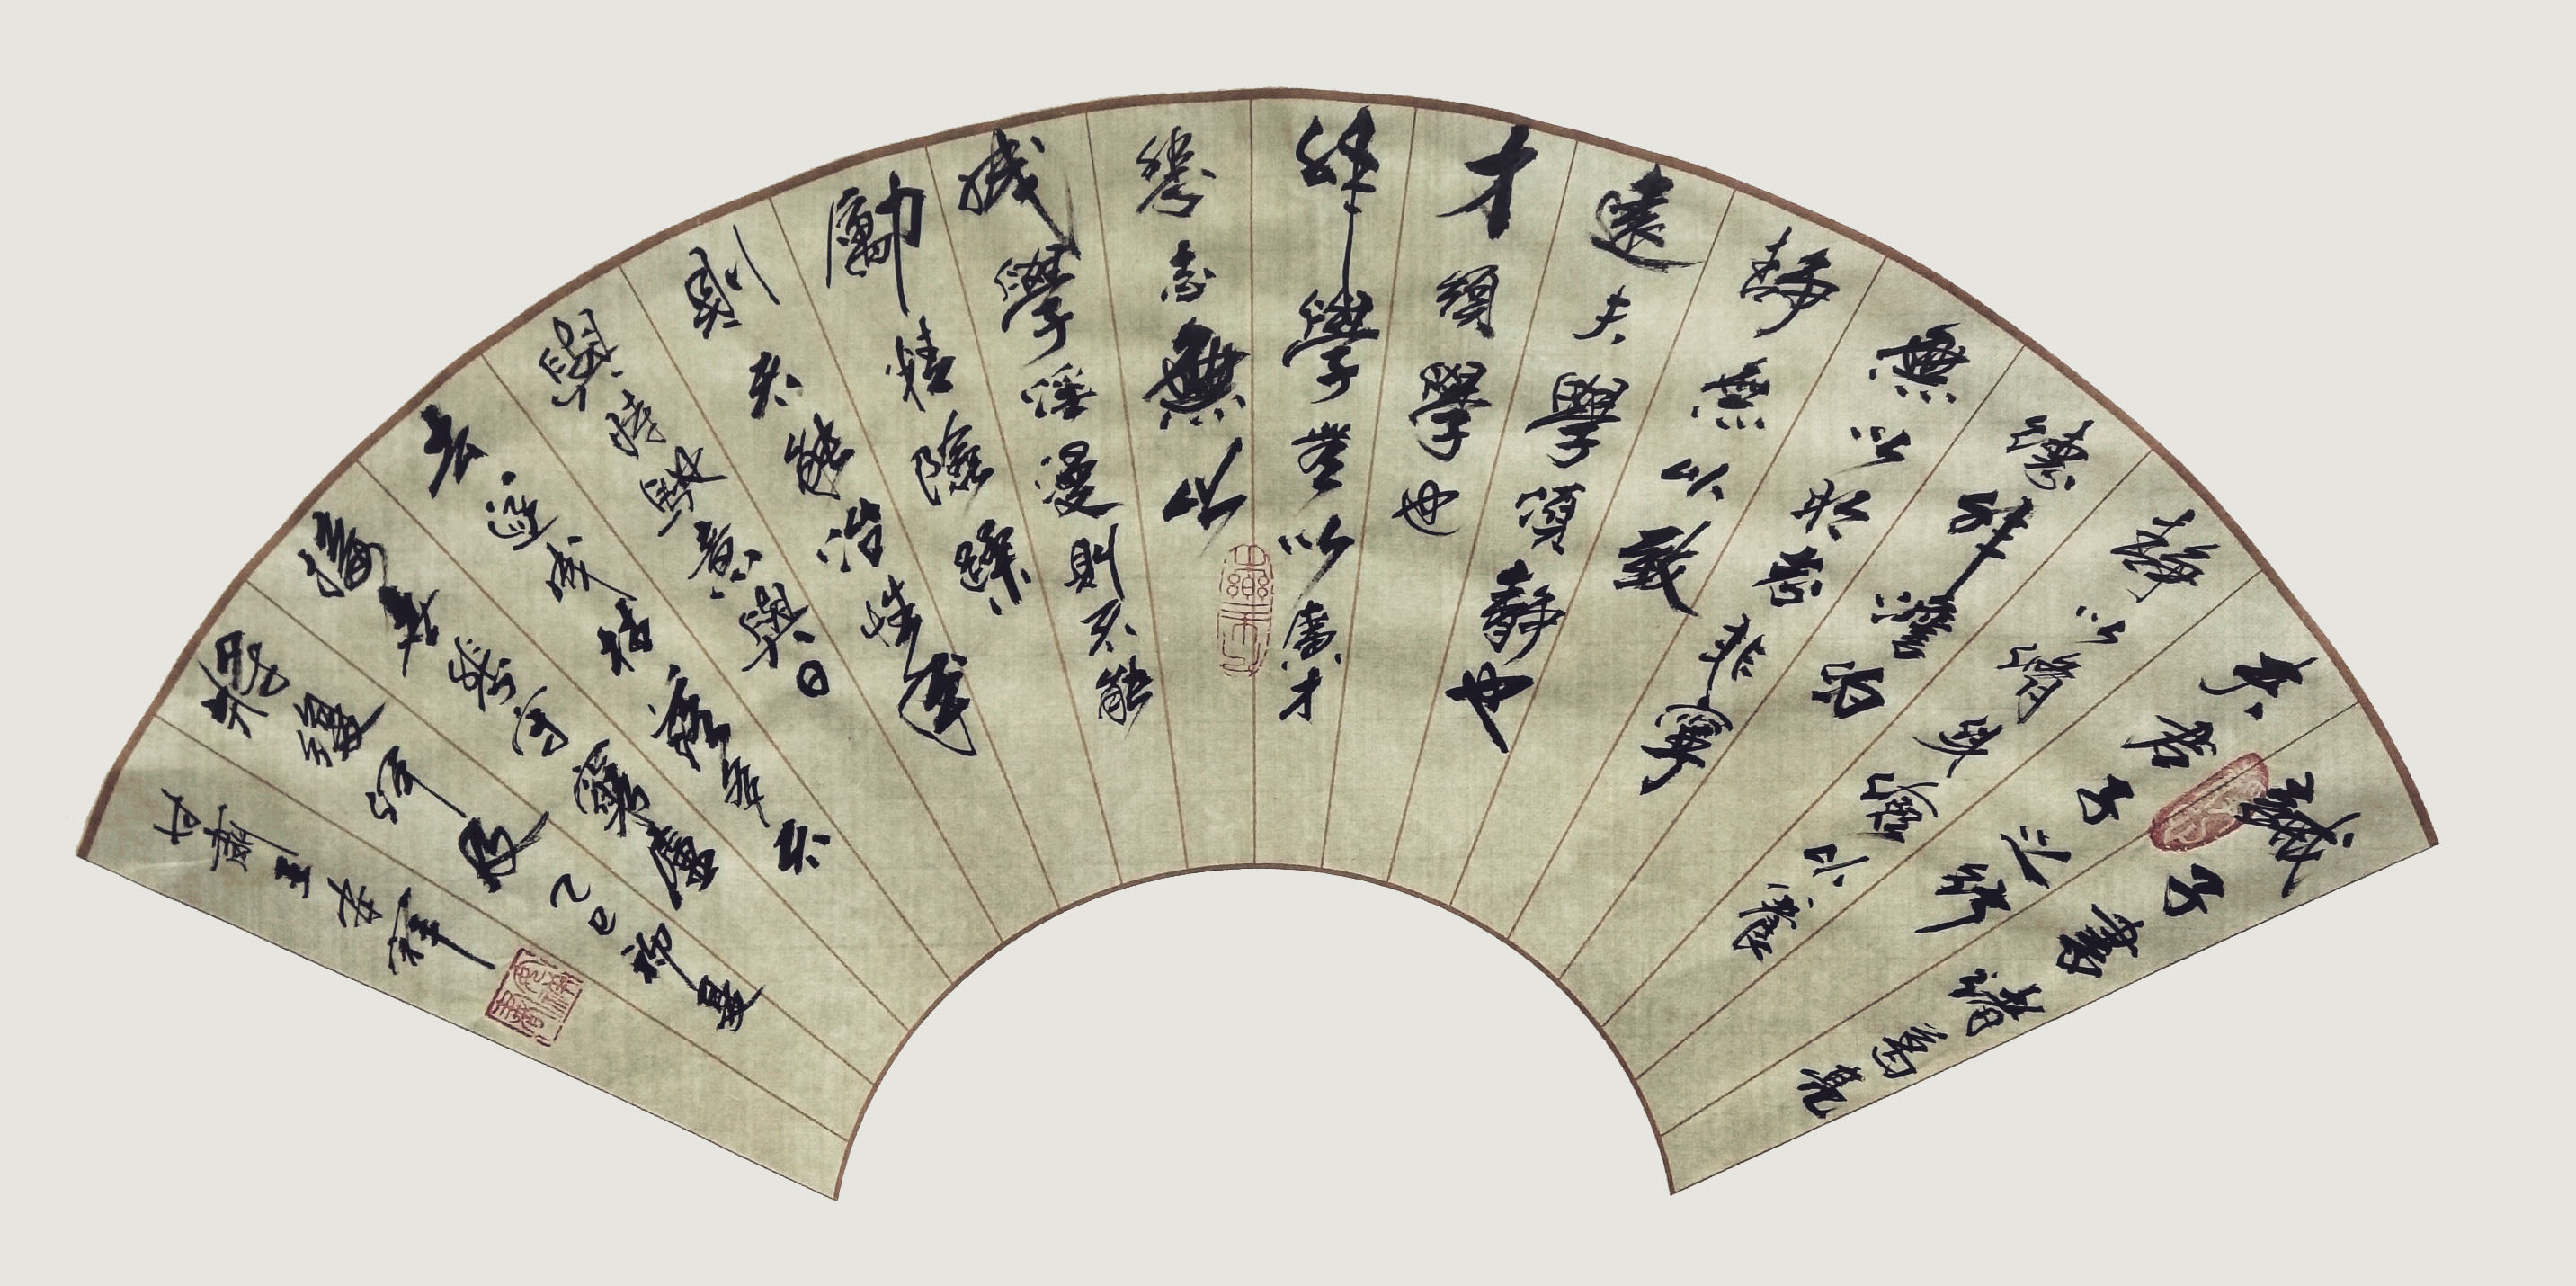 誡子書諸葛亮
夫君子之行
靜以脩身儉以養
德非澹泊
無以明志非寧
靜無以致
遠夫學須靜也
才須學也
非學無以廣才
志無以
成學淫漫則不能
勵精險躁
則不能治性年
與時馳意與日
去遂成枯落多不
接世悲守窮廬
將復何及乙巳夏